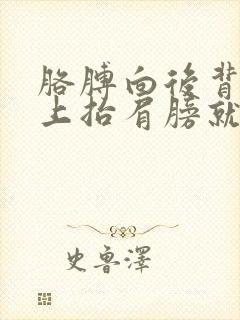 胳膊向後背
上抬肩膀就
史魯澤